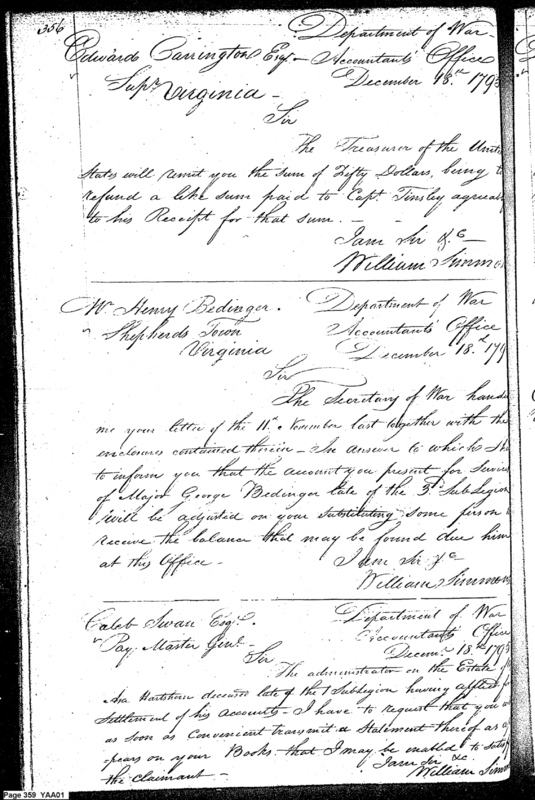 356
Department of War
Edward Carrington Esqr. Accountants Office
December 18th 179
Supr. Virginia
Sir
The Treasurer of the United
States will remit you the sum of Fifty Dollars, being to
refund a like sum paid to Capt. Tinsley agreeably
to his Receipt for that sum.
I am Sir &c
William Simmons
Mr. Henry Bedinger. Department of War
Shepherds Town Accountants Office
Virginia December 18th 179
Sir
The Secretary of War handed
me your letter of the 11th November last together with the
enclosures contained therein — In answer to which I
to inform you that the account you present for Services
of Major George Bedinger late of the 3d Sub Legion
will be adjusted on your substituting some person
receive the balance that may be found due him
at this Office — I am Sir &c
William Simmons
Caleb Swan Esqr. Department of War
Pay Master Genl. Accountants Office
Decemr. 18th 1795
Sir
The administrator on the Estate of
Asa Hartshorn deceased late of the 1 SubLegion having applied for
settlement of his accounts — I have to request that you
as soon as convenient transmit a Statement thereof as
pears on your Books that I may be enabled to satisfy
the claimant — I am Sir &c.
William Simmons
Page 359 YAA01